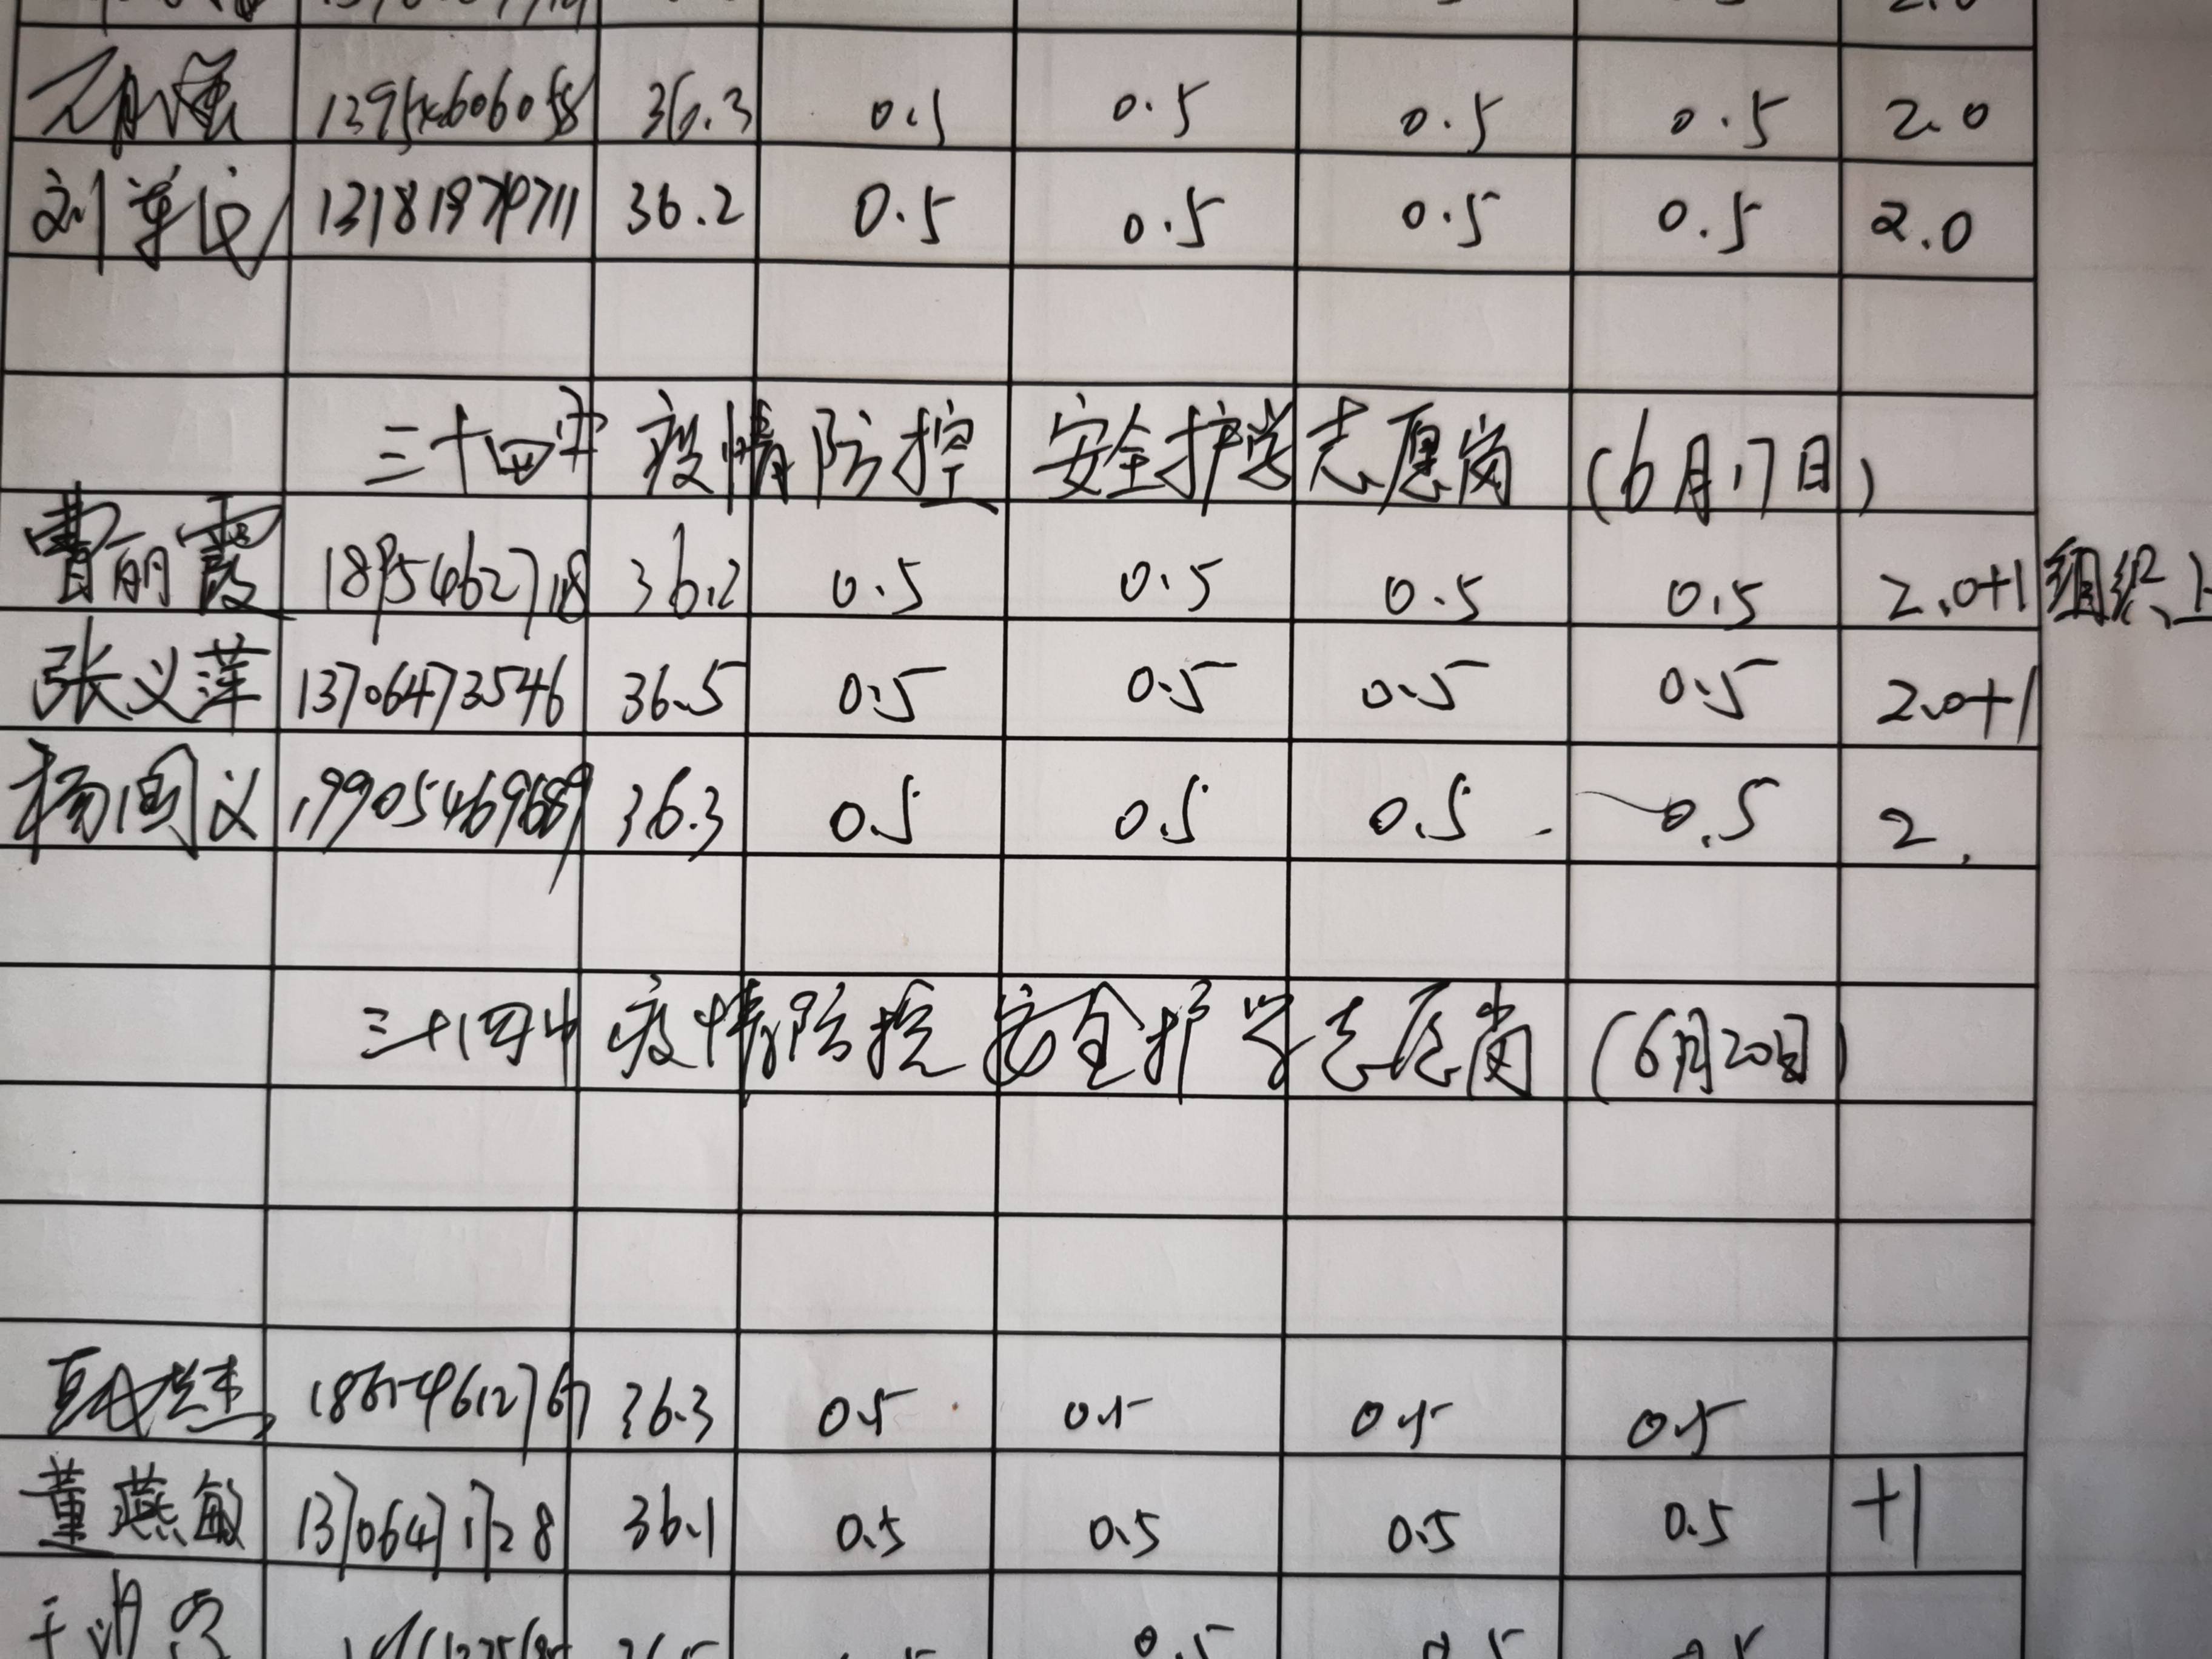 36.3 0.5 0.5 0.5 0.5 2.0
刘 13181979711 36.2 0.5 0.5 0.5 0.5 2.0
三十四中 疫情防控 安全护学志愿岗 (6月17日)
曹丽霞 1895462718 36.2 0.5 0.5 0.5 0.5 2.0+1 组织上
张义萍 13706473546 36.5 0.5 0.5 0.5 0.5 2.0+1
杨国义 19905469689 36.3 0.5 0.5 0.5 0.5 2.
三十四中 疫情防控 安全护学志愿岗 (6月20日)
36.3 0.5 0.5 0.5 0.5
董燕敏 13706471728 36.1 0.5 0.5 0.5 0.5 +1
0.5 0.5 0.5